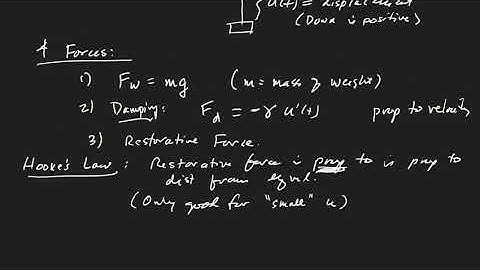 u(t) = displacement
(Down is positive)
4 Forces:
1) Fw = mg (m = mass of weight)
2) Damping: Fd = -γ u'(t) prop to velocity
3) Restorative Force.
Hooke's Law: Restorative force is prop to is prop to
dist from equil.
(Only good for "small" u)